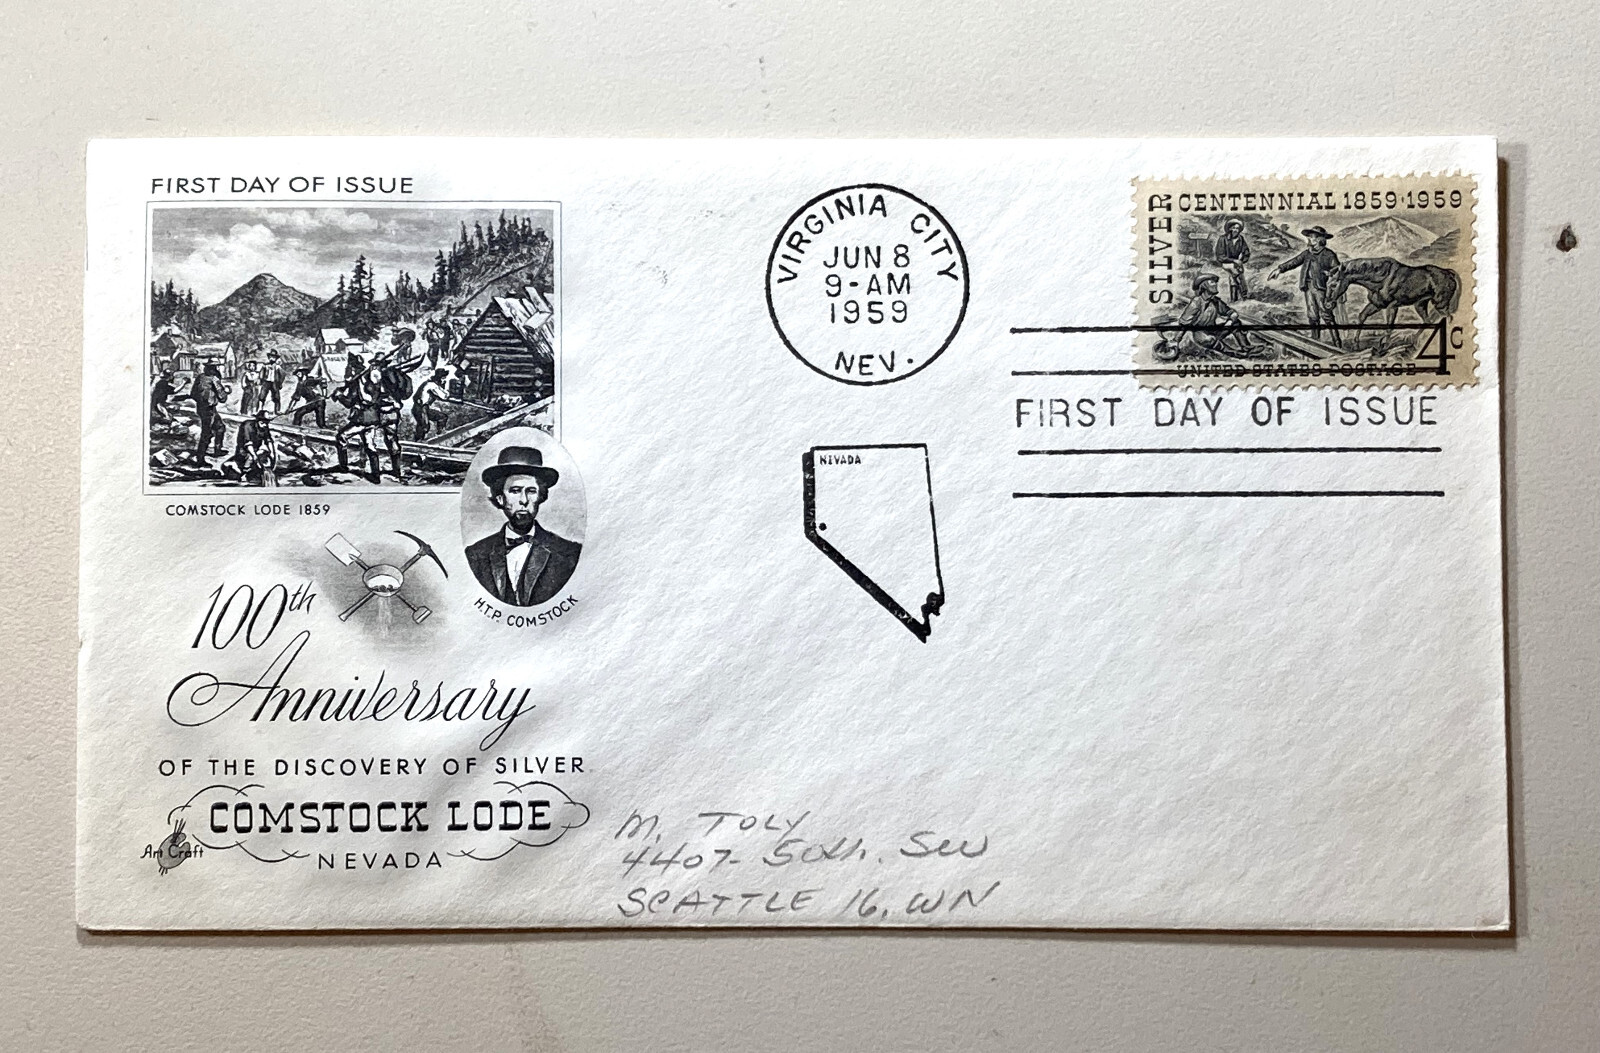 FIRST DAY OF ISSUE
COMSTOCK LODE 1859
H.T.P. COMSTOCK
100th
Anniversary
OF THE DISCOVERY OF SILVER
COMSTOCK LODE
NEVADA
Art Craft
VIRGINIA CITY
JUN 8
9-AM
1959
NEV.
NEVADA
SILVER
CENTENNIAL 1859·1959
4c
UNITED STATES POSTAGE
FIRST DAY OF ISSUE
M. TOLY
4407- 50th. SW
SEATTLE 16, WN